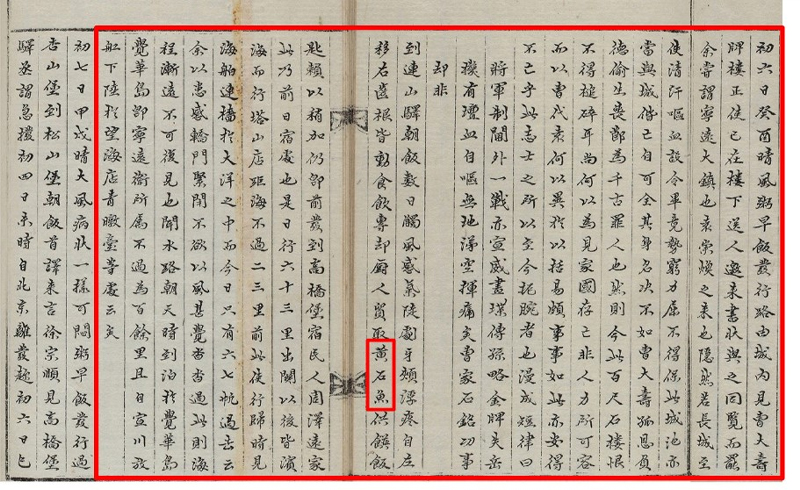 初六日癸酉晴風粥早飯發行路由城內見曺大壽
牌樓正使已在樓下送人邀來書狀與之同覽而罷
余嘗謂寧遠大鎭也袁崇煥之來也隱然若長城至
使清汗嘔血設令軍竟勢窮力屈不得保此城池亦
當與城偕亡自可全其身名決不如曺大壽孤恩負
德偷生喪節為千古罪人也然則今此百尺石樓恨
不得槌碎耳尙何以為見家國存亡非人力所可容
而以曺代袁何以異於以括易頗事事如此亦安得
不亡乎此志士之所以至今扼腕者也漫成短律曰
將軍制閫外一戰亦宣威盡瑾傳孫略金牌矢岳
機有壇血自嘔無地淚空揮痛矣曺家石銘功事
却非
到連山驛朝飯數日觸風感氣陡劇牙頰浮疼自左
移右齒根皆動食飮專却厨人貿取黃石魚供饌飯
匙賴以稍加仍卽前發到高橋堡宿民人周澤遠家
此乃前日宿處也是日行六十三里出關以後皆濱
海而行塔山店距海不過二三里前此使行歸時見
海船連檣於大洋之中而今日只有六七帆過去云
余以患感轎門緊閉不欲以風甚覺沓沓過此則海
程漸遠不可復見也聞水路朝天時到泊於覺華島
覺華島卽寧遠衛所屬不過為百餘里且自宣川放
舡下陸於望海店青暾臺等處云矣
初七日甲戌晴大風病狀一樣可悶粥早飯發行過
杏山堡到松山堡朝飯首譯來言徐宗順見高橋堡
驛丞謂急擾初四日亥時自北京離發趂初六日巳